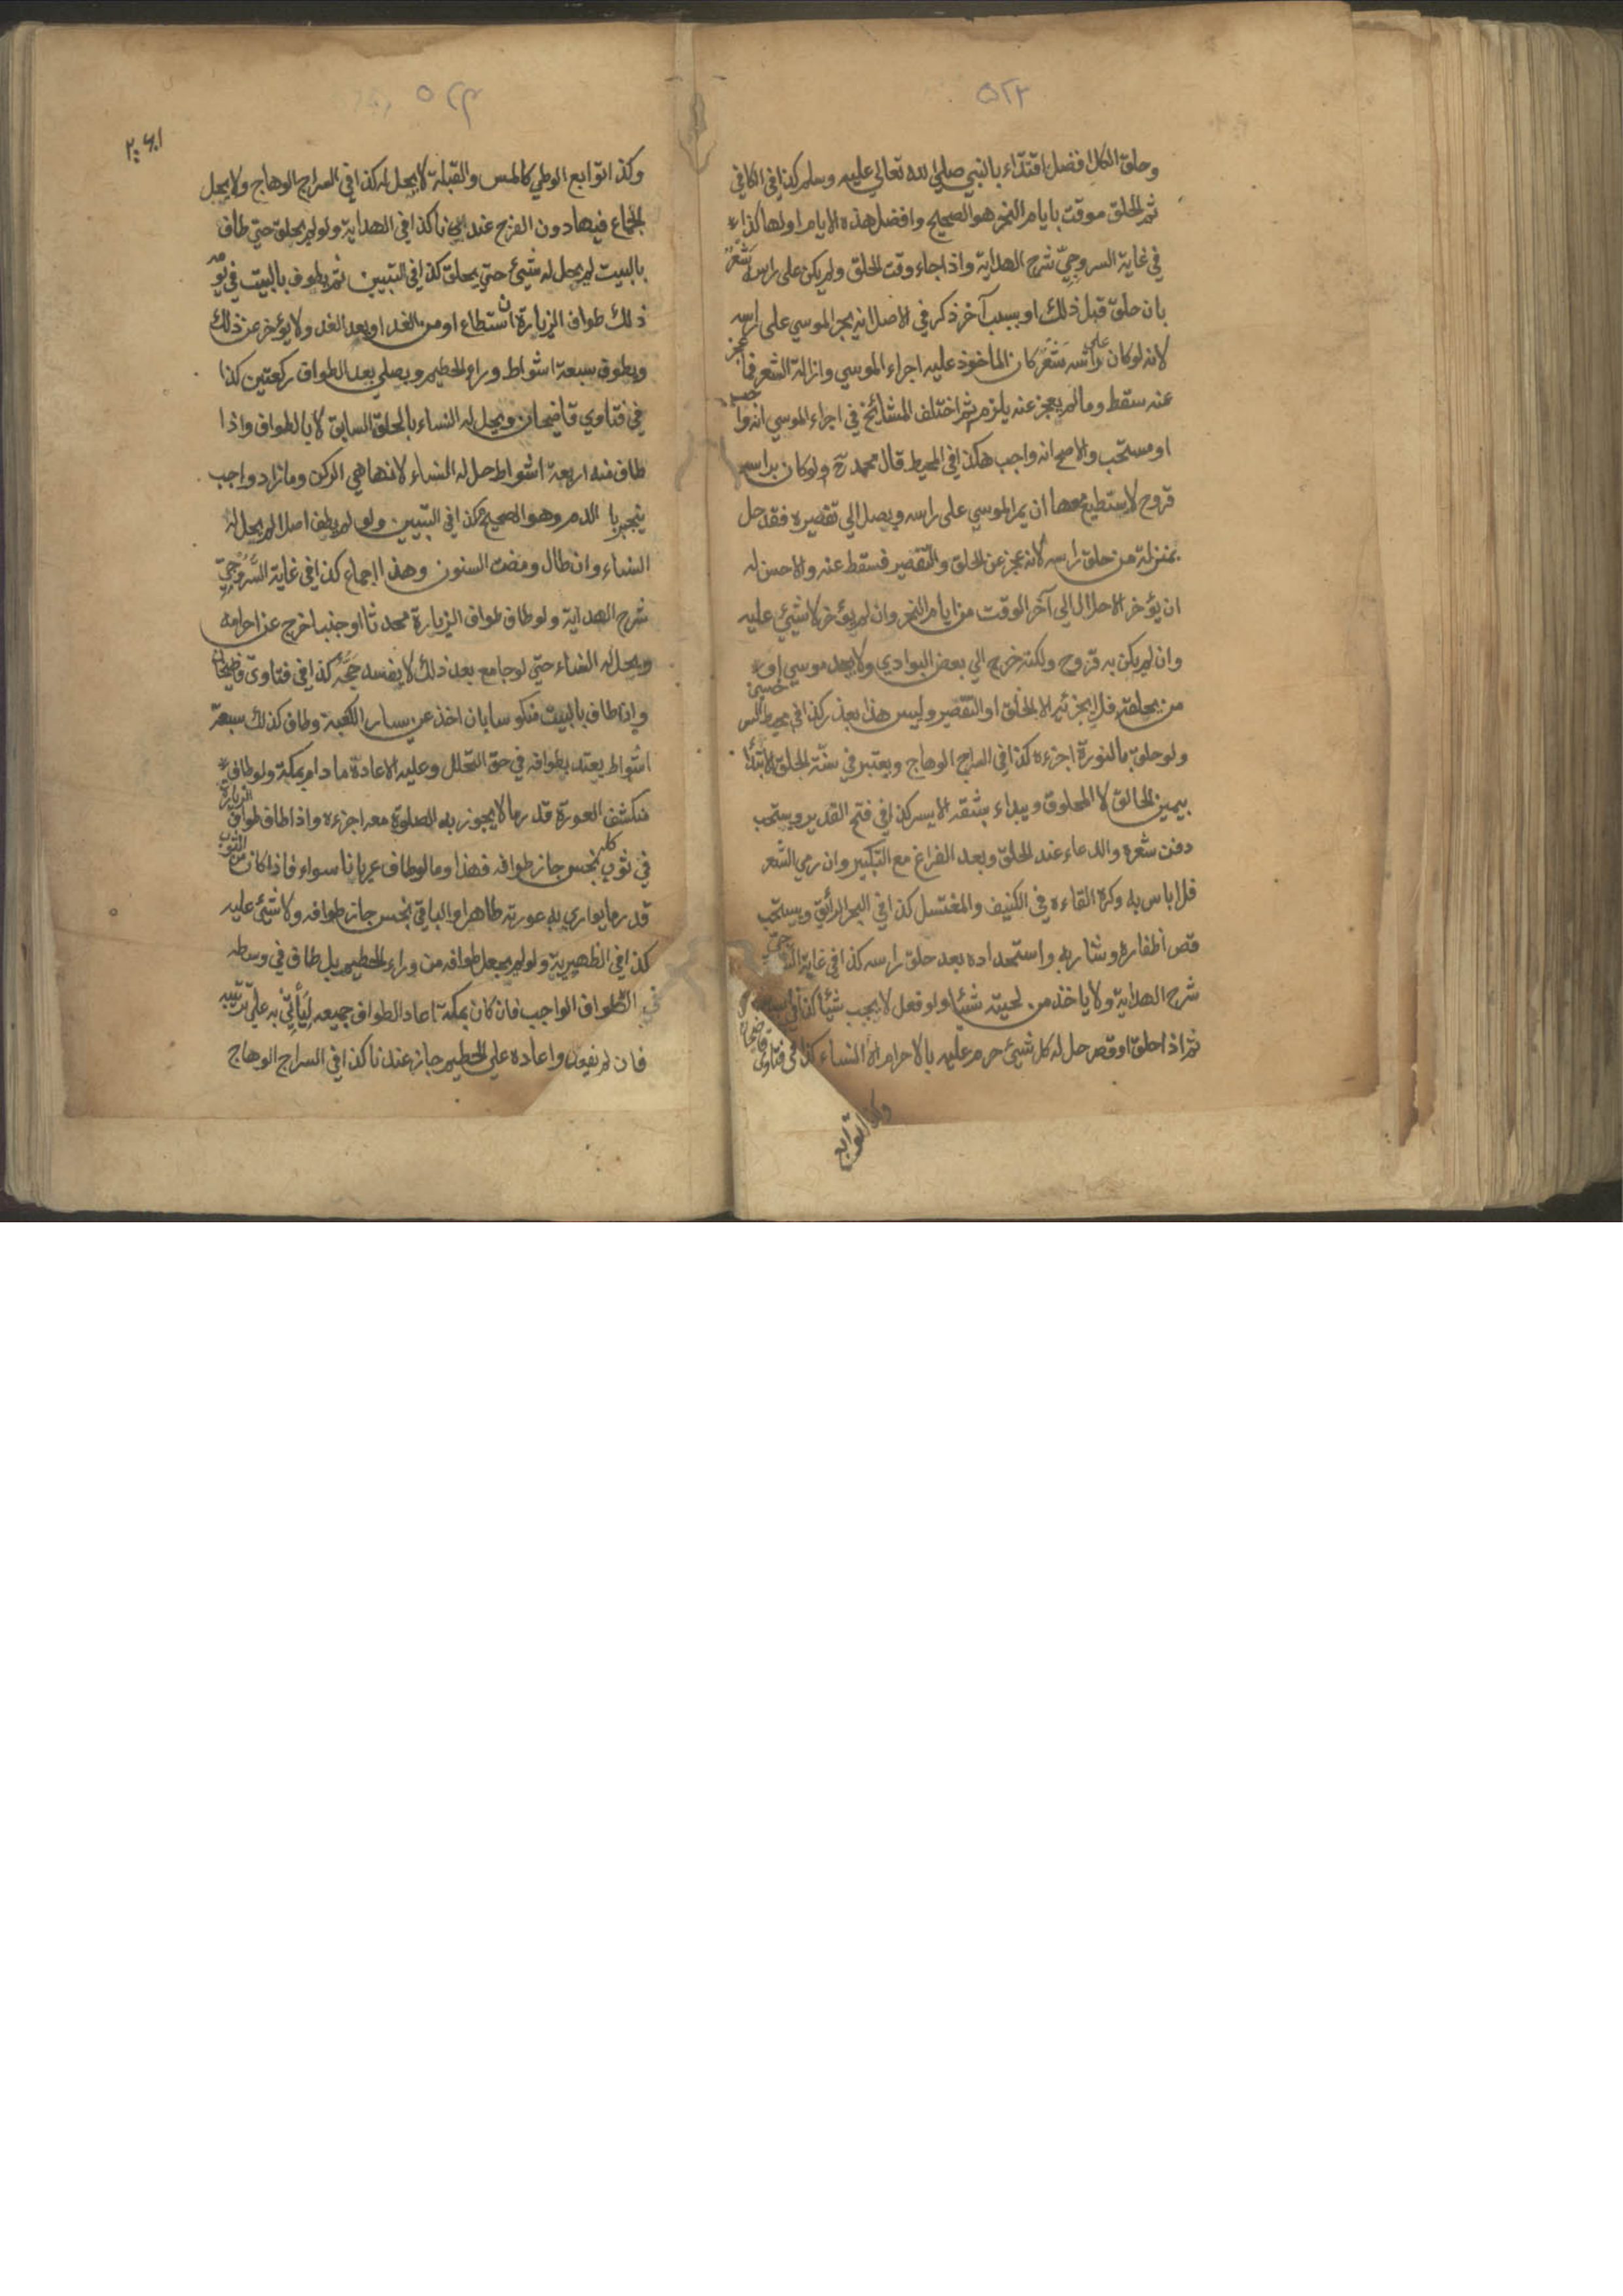 ٥٢٣
وحلق الكل افضل اقتداء بالنبي صلي الله تعالي عليه وسلم كذا في الكافي
ثم الحلق موقت بايام النحر هو الصحيح وافضل هذه الايام اولها كذا
في غاية السروجيّ شرح الهداية واذا جاء وقت الحلق ولم يكن على راسه شَعْرٌ
بان حلق قبل ذلك او بسبب آخر ذكر في الاصل انه يجر الموسي على راسه
لانه لو كان علي راسه شَعْرٌ كان المأخوذ عليه اجراء الموسي وازالة الشعر فما عجز
عنه سقط وما لم يعجز عنه يلزم ثم اختلف المشائخ في اجراء الموسي انه واجب
او مستحب والاصح انه واجب هكذا في المحيط قال محمد رح ولو كان براسه
قروح لا يستطيع معها ان يمر الموسي على راسه و يصل الي تقصيره فقد حل
بمنزلة من حلق راسه لانه عجز عن الحلق والتقصير فسقط عنه والاحسن له
ان يؤخر الاحلال الي آخر الوقت من ايام النحر وان لم يؤخر لا شيئ عليه
وان لم يكن به قروح ولكنه خرج الي بعض البوادي ولا يجد موسي او
من يحلقه فلا يجزئه الا الحلق او التقصير وليس هذا بعذر كذا في محيط السرخسي
ولو حلق بالنورة اجزءه كذا في السراج الوهاج ويعتبر في سنّة الحلق الابتدأ
بيمين الحالق لا المحلوق ويبداء بشقه الايسر كذا في فتح القدير ويستحب
دفن شعره والدعاء عند الحلق وبعد الفراغ مع التكبير وان رمي الشعر
فلا باس به وكره القاءه في الكنيف والمغتسل كذا في البحر الرأيق ويستحب
قص أظفاره وشاربه واستحداده بعد حلق راسه كذا في غاية السروجيّ
شرح الهداية ولا ياخذ من لحيته شيئا ولو فعل لا يجب شيئا كذا في
ثم اذا حلق او قصر حل له كل شيئ حرم عليه بالاحرام الا النساء كذا في فتاوى قاضيخان
وكذا توابع
٥٢٤
وكذا توابع الوطي كالمس والقبلة لا يحل له كذا في السراج الوهاج ولا يحل
الجماع فيما دون الفرج عندنا كذا في الهداية ولو لم يحلق حتي طاف
بالبيت لم يحل له شيئ حتي يحلق كذا في التبيين ثم يطوف بالبيت في يومه
ذلك طواف الزيارة ان استطاع او من الغد او بعد الغد ولا يؤخر عن ذلك
ويطوف سبعة اشواط وراء الحطيم ويصلي بعد الطواف ركعتين كذا
في فتاوي قاضيخان ويحل له النساء بالحلق السابق لا بالطواف واذا
طاف منه اربعة اشواط حل له النساء لانها هي الركن وما زاد واجب
ينجبر با الدم وهو الصحيح كذا في التبيين ولو لم يطف اصلا لم يحل له
النساء وان طال ومضت السنون وهذا اجماع كذا في غاية السَّروجيّ
شرح الهداية ولو طاف طواف الزيارة محدثا او جنبا خرج عن احرامه
ويحل له النساء حتي لو جامع بعد ذلك لا يفسد حَجُّه كذا في فتاوى قاضيخان
واذا طاف بالبيت منكوسا بان اخذ عن يسار الكعبة وطاف كذلك سبعة
اشواط يعتد بطوافه في حق التحلل وعليه الاعادة ما دام بمكة ولو طاف
منكشف العورة قدر ما لا يجوز به الصلوة معه اجزءه واذا طاف طواف الزيارة
في ثوب كله نجس جاز طوافه فهذا وما لو طاف عريانا سواء فاذا كان من الثوب
قدر ما يواري به عورته طاهرا والباقي نجس جاز طوافه ولا شيئ عليه
كذا في الظهيرية ولو لم يجعل طوافه من وراء الحطيم بل طاف في وسطه
في الطواف الواجب فان كان بمكة اعاد الطواف جميعه ليأتي به علي ترتيبه
فان لم يفعل واعاده علي الحطيم جاز عندنا كذا في السراج الوهاج